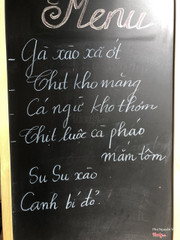 Menu
- Gà xào xả ớt
Thịt kho măng
Cá ngừ kho thơm
Thịt luộc cà pháo
mắm tôm
Su Su xào
Canh bí đỏ.